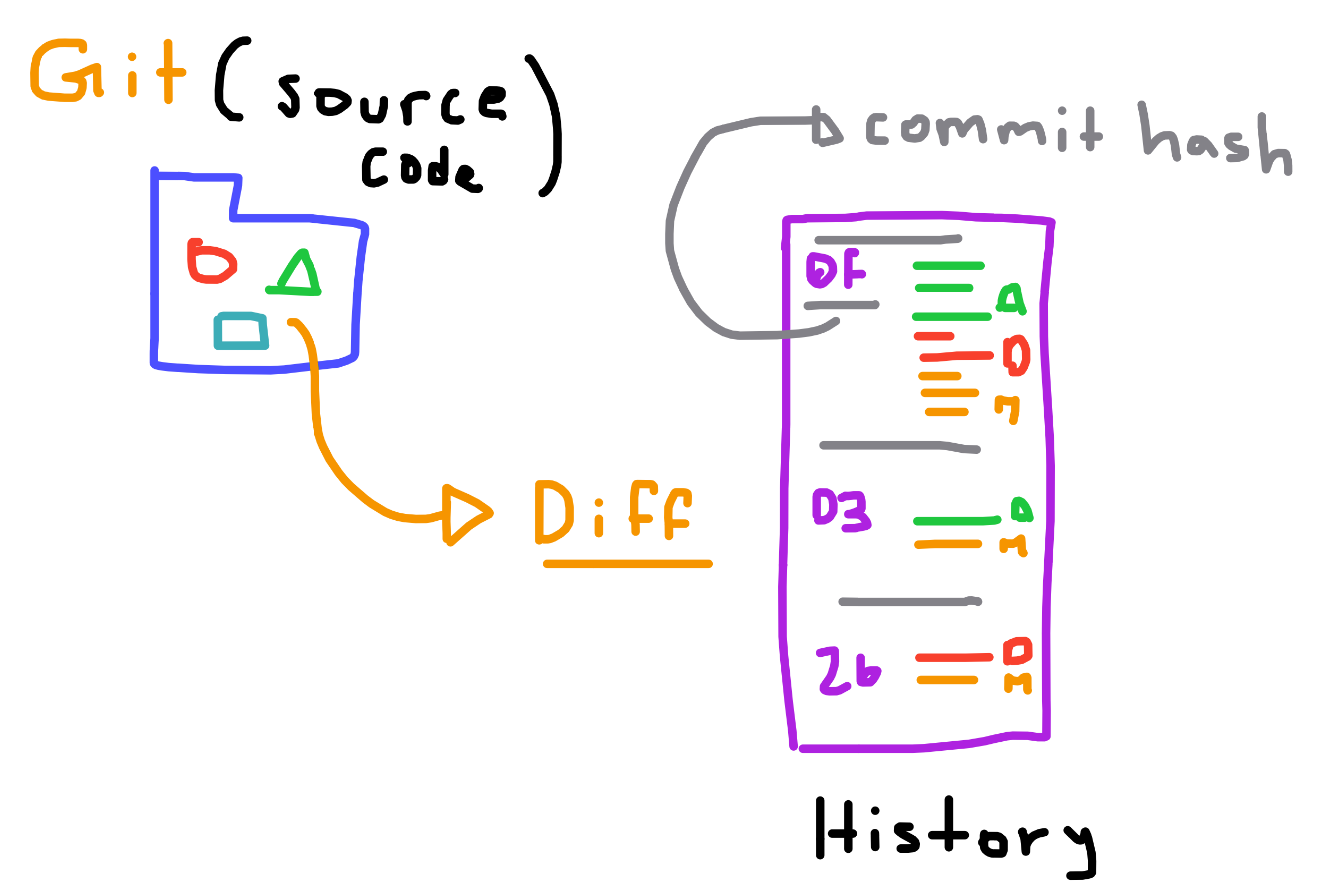 Git (source
code)
commit hash
0F
A
D
M
Diff
D3
A
M
2b
D
M
History